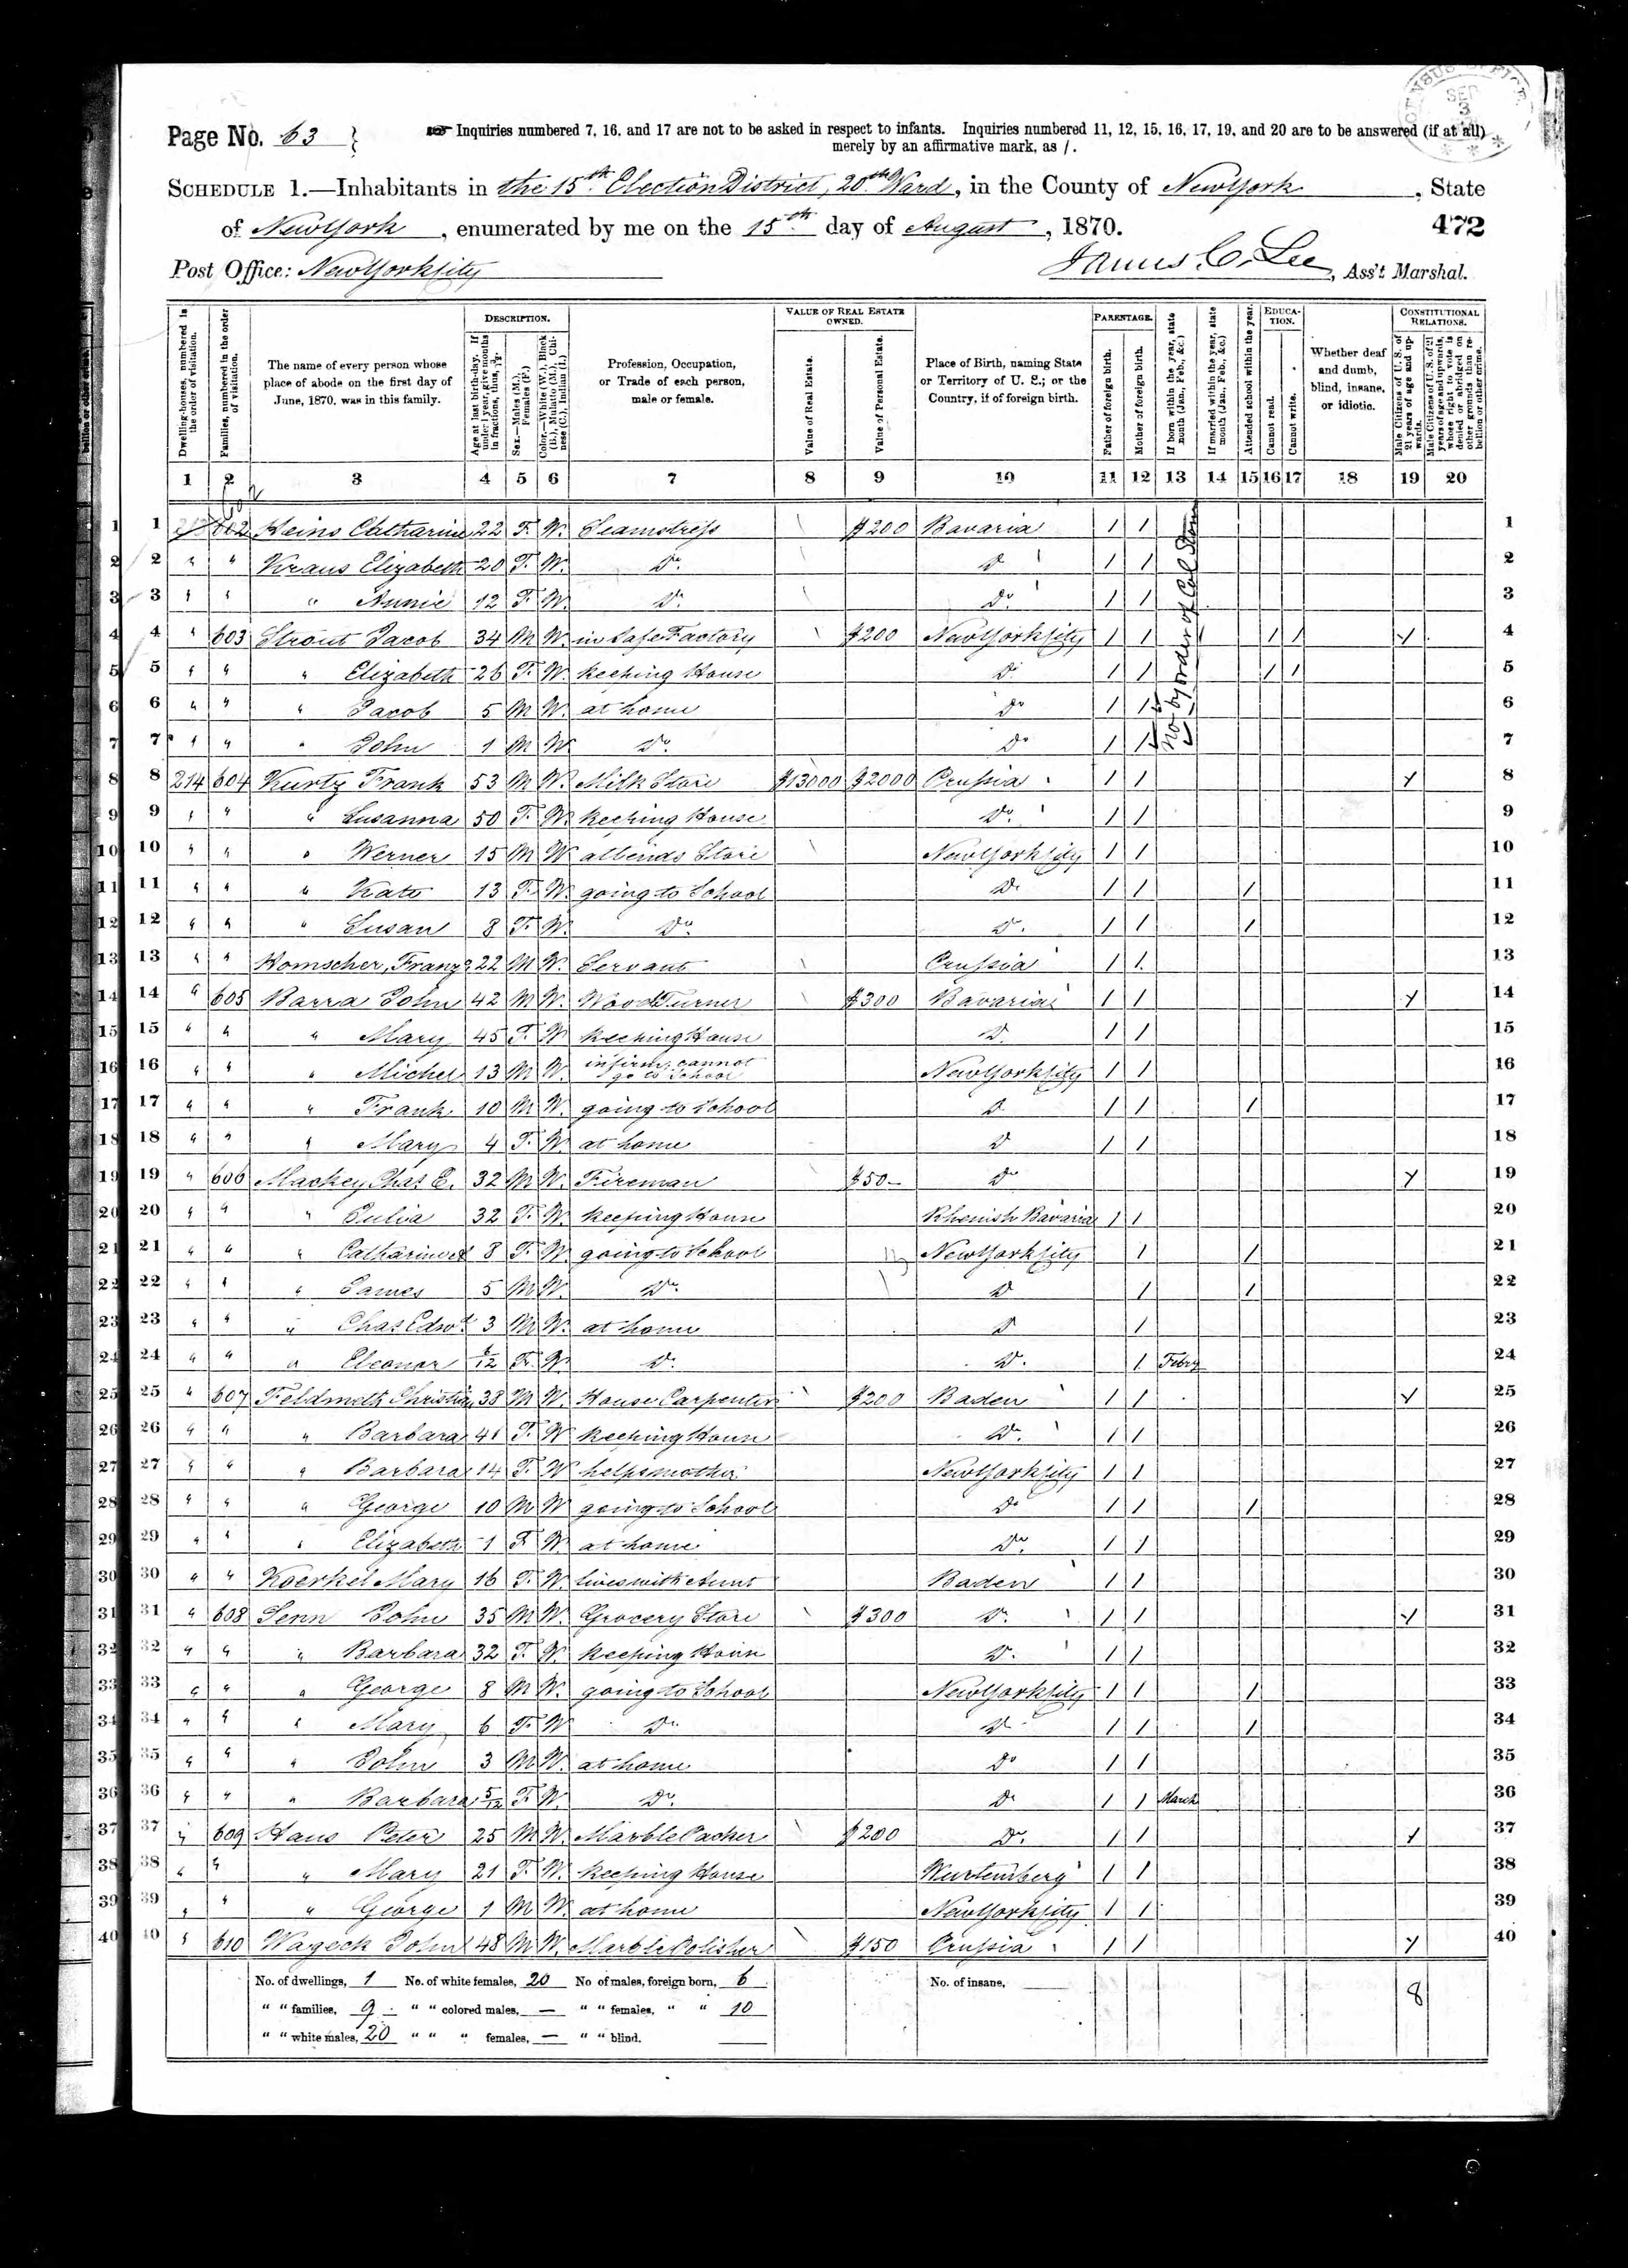 Page No. 63 } Inquiries numbered 7, 16, and 17 are not to be asked in respect to infants. Inquiries numbered 11, 12, 15, 16, 17, 19, and 20 are to be answered (if at all)
merely by an affirmative mark, as /.
SCHEDULE 1.—Inhabitants in the 15th Election District, 20th Ward, in the County of New York, State
of New York, enumerated by me on the 15th day of August, 1870. 472
Post Office: New York City James C. Lee, Ass't Marshal.
DESCRIPTION. VALUE OF REAL ESTATE OWNED. PARENTAGE. EDUCATION. CONSTITUTIONAL RELATIONS.
Dwelling-houses, numbered in the order of visitation.
Families, numbered in the order of visitation.
The name of every person whose place of abode on the first day of June, 1870, was in this family.
Age at last birth-day. If under 1 year, give months in fractions, thus,
Sex.—Males (M.), Females (F.)
Color.—White (W.), Black (B.), Mulatto (M.), Chinese (C.), Indian (I.)
Profession, Occupation, or Trade of each person, male or female.
Value of Real Estate.
Value of Personal Estate.
Place of Birth, naming State or Territory of U. S.; or the Country, if of foreign birth.
Father of foreign birth.
Mother of foreign birth.
If born within the year, state month (Jan., Feb., &c.)
If married within the year, state month (Jan., Feb., &c.)
Attended school within the year.
Cannot read.
Cannot write.
Whether deaf and dumb, blind, insane, or idiotic.
Male Citizens of U. S. of 21 years of age and upwards.
Male Citizens of U. S. of 21 years of age and upwards, whose right to vote is denied or abridged on other grounds than rebellion or other crime.
1 2 3 4 5 6 7 8 9 10 11 12 13 14 15 16 17 18 19 20
1 602 Heins Catharine 22 F. W. Seamstress $200 Bavaria / / 1
2 " " Kraus Elizabeth 20 F. W. Do. Do / / 2
3 " " " Annie 12 F. W. Do. Do. / / 3
4 " 603 Strout Jacob 34 M W. in Safe Factory $200 New York City / / / / / 4
5 " " " Elizabeth 26 F. W. Keeping House Do / / / / 5
6 " " " Jacob 5 M W. at home Do / / 6
7 " " " John 1 M W Do. Do / / 7
no by order of Col
8 214 604 Kurtz Frank 53 M W. Milk Store $13000 $2000 Prussia / / / 8
9 " " " Susanna 50 F. W. Keeping House Do. / / 9
10 " " " Werner 15 M W attends Store New York City / / 10
11 " " " Kate 13 F. W. going to School Do / / / 11
12 " " " Susan 8 F. W. Do. Do. / / / 12
13 " " Homscher, Franz 22 M W. Servant Prussia / / 13
14 " 605 Barra John 42 M W. Wood Turner $300 Bavaria / / / 14
15 " " " Mary 45 F. W Keeping House Do. / / 15
16 " " " Michel 13 M W. infirm, cannot go to School New York City / / 16
17 " " " Frank 10 M W. going to School Do / / / 17
18 " " " Mary 4 F. W. at home Do / / 18
19 " 606 Mackey Chas E. 32 M W. Fireman $50 Do / 19
20 " " " Julia 32 F. W. Keeping House Rhenish Bavaria / / 20
21 " " " 8 F. W. going to School New York City / / 21
22 " " " James 5 M W. Do. Do / / 22
23 " " " Chas Edwd. 3 M W. at home Do / 23
24 " " " Eleonor 6/12 F. W. Do. Do. / Febry 24
25 " 607 Feldmeth Christian 38 M W. House Carpenter $200 Baden / / / 25
26 " " " Barbara 41 F. W Keeping House Do. / / 26
27 " " " Barbara 14 F. W helps mother New York City / / 27
28 " " " George 10 M W going to School Do / / / 28
29 " " " Elizabeth 1 F W at home Do. / / 29
30 " " Koerkel Mary 16 F. W. lives with Aunt Baden / / 30
31 " 608 Senn John 35 M W. Grocery Store $300 Do. / / / 31
32 " " " Barbara 32 F. W. Keeping House Do. / / 32
33 " " " George 8 M W. going to School New York City / / / 33
34 " " " Mary 6 F. W Do. Do / / / 34
35 " " " John 3 M W. at home Do / / 35
36 " " " Barbara 5/12 F. W. Do. Do / / March 36
37 " 609 Haus Peter 25 M W. Marble Packer $200 Do. / / / 37
38 " " " Mary 21 F. W. Keeping House Wurtemberg / / 38
39 " " " George 1 M W. at home New York City / / 39
40 " 610 Wageck John 48 M W. Marble Polisher $150 Prussia / / / 40
No. of dwellings, 1 No. of white females, 20 No of males, foreign born, 6 No. of insane, 8
" " families, 9 " " colored males, — " " females, " " 10
" " white males, 20 " " " females, — " " blind.